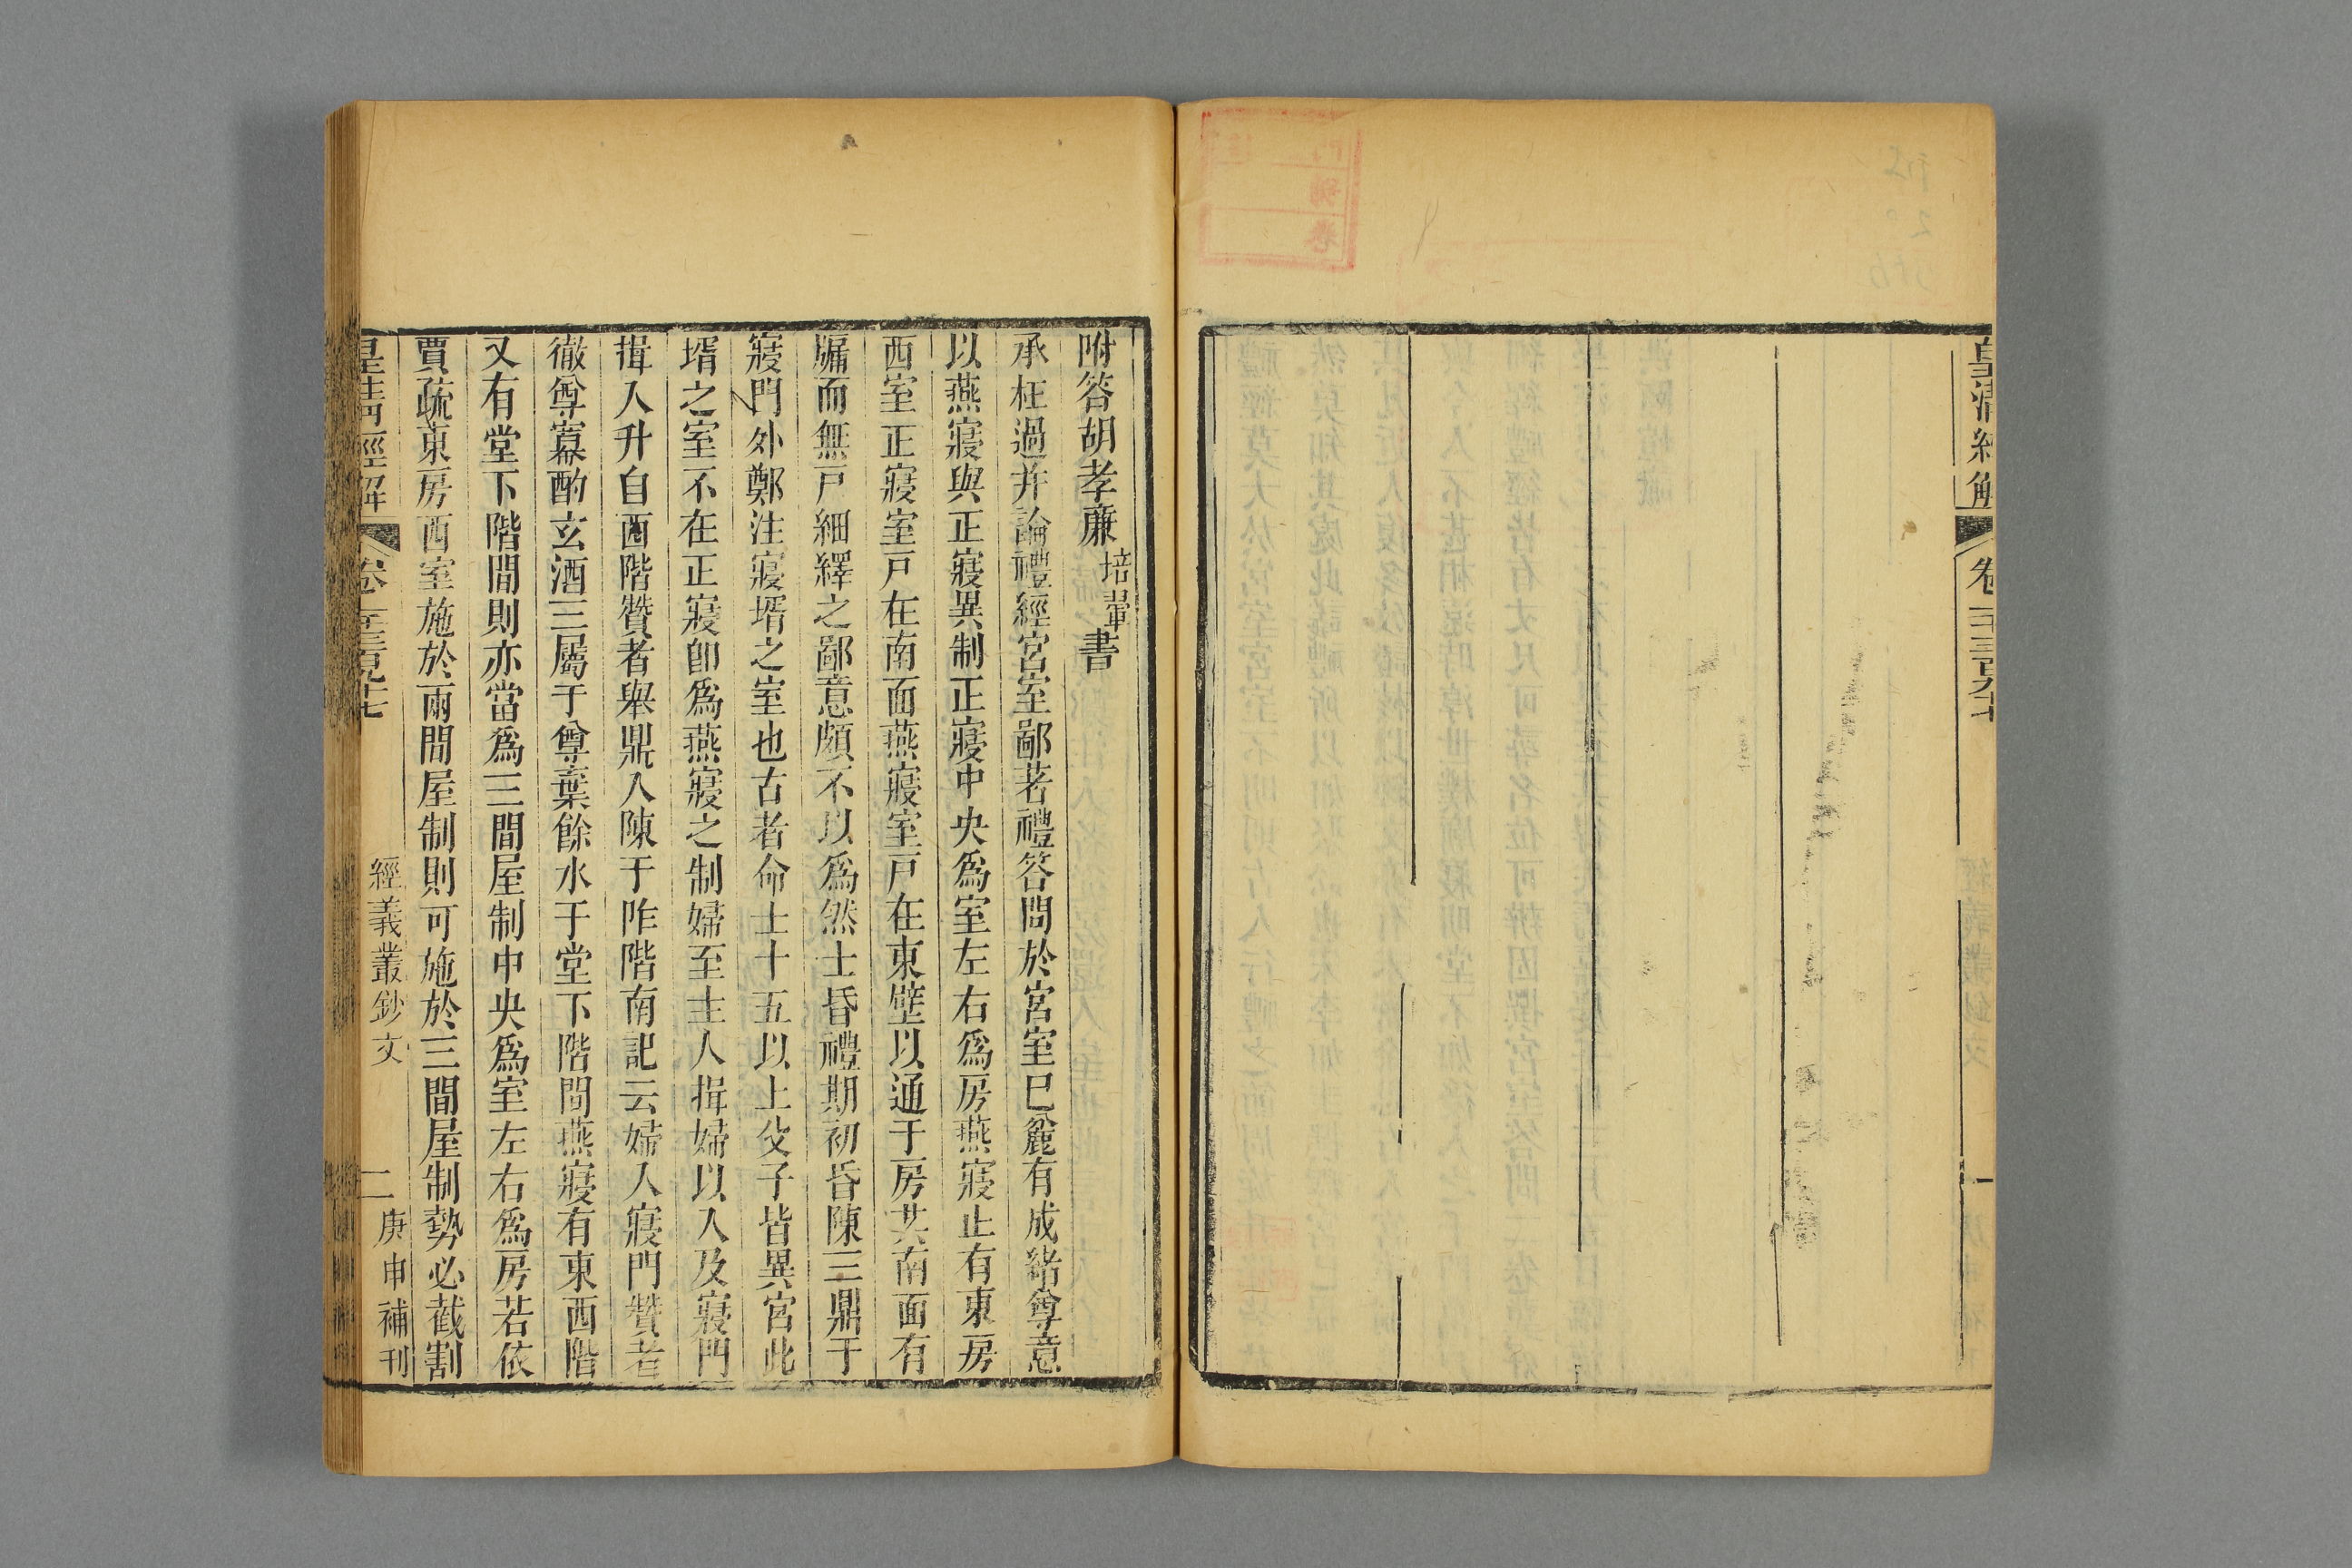 皇清經解
卷一千三百九十七
附答胡孝廉培翬書
承枉過并論禮經宮室鄙著禮答問於宮室巳麤有成緒尊意
以燕寢與正寢異制正寢中央爲室左右爲房燕寢止有東房
西室正寢室戸在南面燕寢室戸在東壁以通于房共南面有
牖而無戸細繹之鄙意頗不以爲然士昏禮期初昏陳三鼎于
寢門外鄭注寢壻之室也古者命士十五以上父子皆異宮此
壻之室不在正寢卽爲燕寢之制婦至主人揖婦以入及寢門
揖入升自西階贊者舉鼎入陳于阼階南記云婦人寢門贊者
徹尊冪酌玄酒三屬于尊棄餘水于堂下階間燕寢有東西階
又有堂下階間則亦當爲三間屋制中央爲室左右爲房若依
賈疏東房西室施於兩間屋制則可施於三間屋制勢必截割
皇清經解
卷一千三百九十七
經義叢鈔文
二
庚申補刊